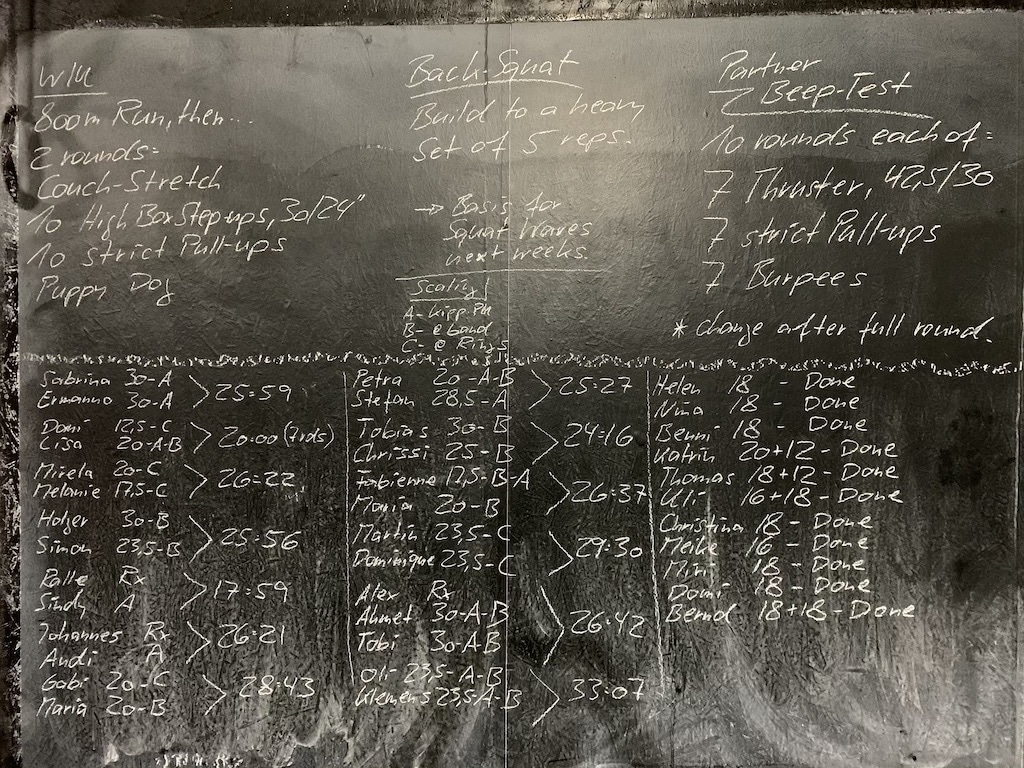 W/U
800m Run, then...
2 rounds:
Couch-Stretch
10 High Box Step-ups, 30/24"
10 strict Pull-ups
Puppy Dog
Back-Squat
Build to a heavy
Set of 5 reps.
→ Basis for
Squat Waves
next weeks
Scaling
A- Kipp. PU
B- @ band
C- @ Rings
Partner
2 Beep-Test
10 rounds each of:
7 Thruster, 42,5/30
7 strict Pull-ups
7 Burpees
* change after full round.
Sabrina 30-A
Ermanno 30-A > 25:59
Domi 12,5-C
Lisa 20-A-B > 20:00 (7rds)
Mirela 20-C
Melanie 17,5-C > 26:22
Holger 30-B
Simon 23,5-B > 25:56
Ralle Rx
Sindy A > 17:59
Johannes Rx
Andi A > 26:21
Gabi 20-C
Maria 20-B > 28:43
Petra 20-A-B
Stefan 28,5-A > 25:27
Tobias 30-B
Chrissi 25-B > 24:16
Fabienne 17,5-B-A
Maria 20-B > 26:37
Martin 23,5-C
Dominique 23,5-C > 29:30
Alex Rx
Ahmet 30-A-B
Tobi 30-A-B > 26:42
Oli 23,5-A-B
Klemens 23,5-A-B > 33:07
Helen 18 - Done
Nina 18 - Done
Benni 18 - Done
Katrin 20+12 - Done
Thomas 18+12 - Done
Uli 16+18 - Done
Christina 18 - Done
Meike 16 - Done
Mimi 18 - Done
Domi 18 - Done
Bernd 18+18 - Done